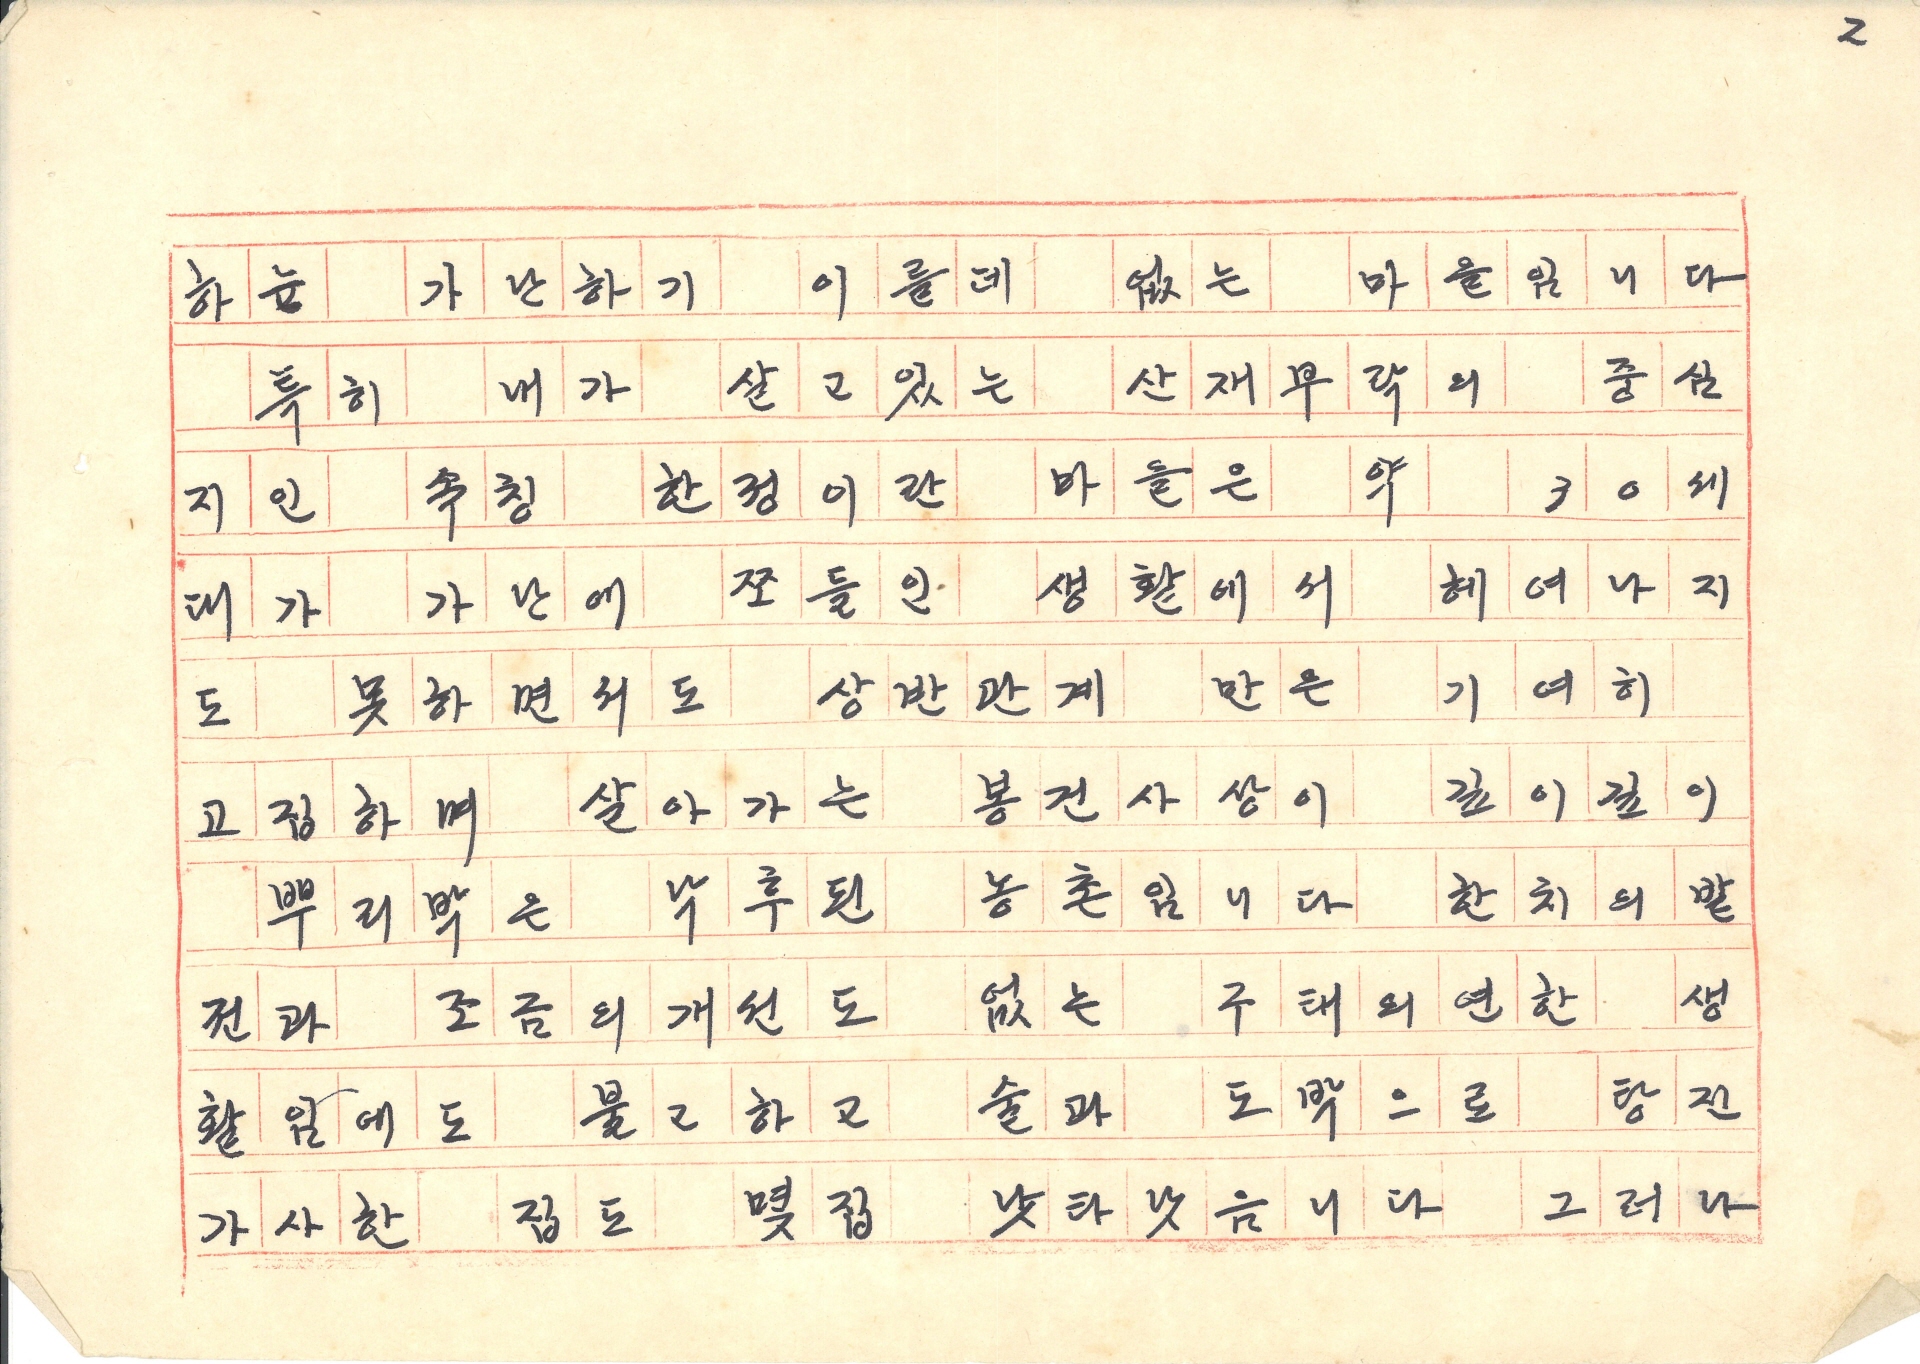 2
하는 가난하기 이를데 없는 마을임니다
특히 내가 살고있는 산재부락의 중심
지인 속칭 한정이란 마을은 약 30세
대가 가난에 쪼들인 생활에서 헤여나지
도 못하면서도 상반관계 만은 기여히
고집하며 살아가는 봉건사상이 깊이깊이
뿌리박은 낙후된 농촌임니다 한치의 발
전과 조금의 개선도 없는 구태의연한 생
활임에도 불고하고 술과 도박으로 탕진
가사한 집도 몇집 낫타낫음니다 그러나